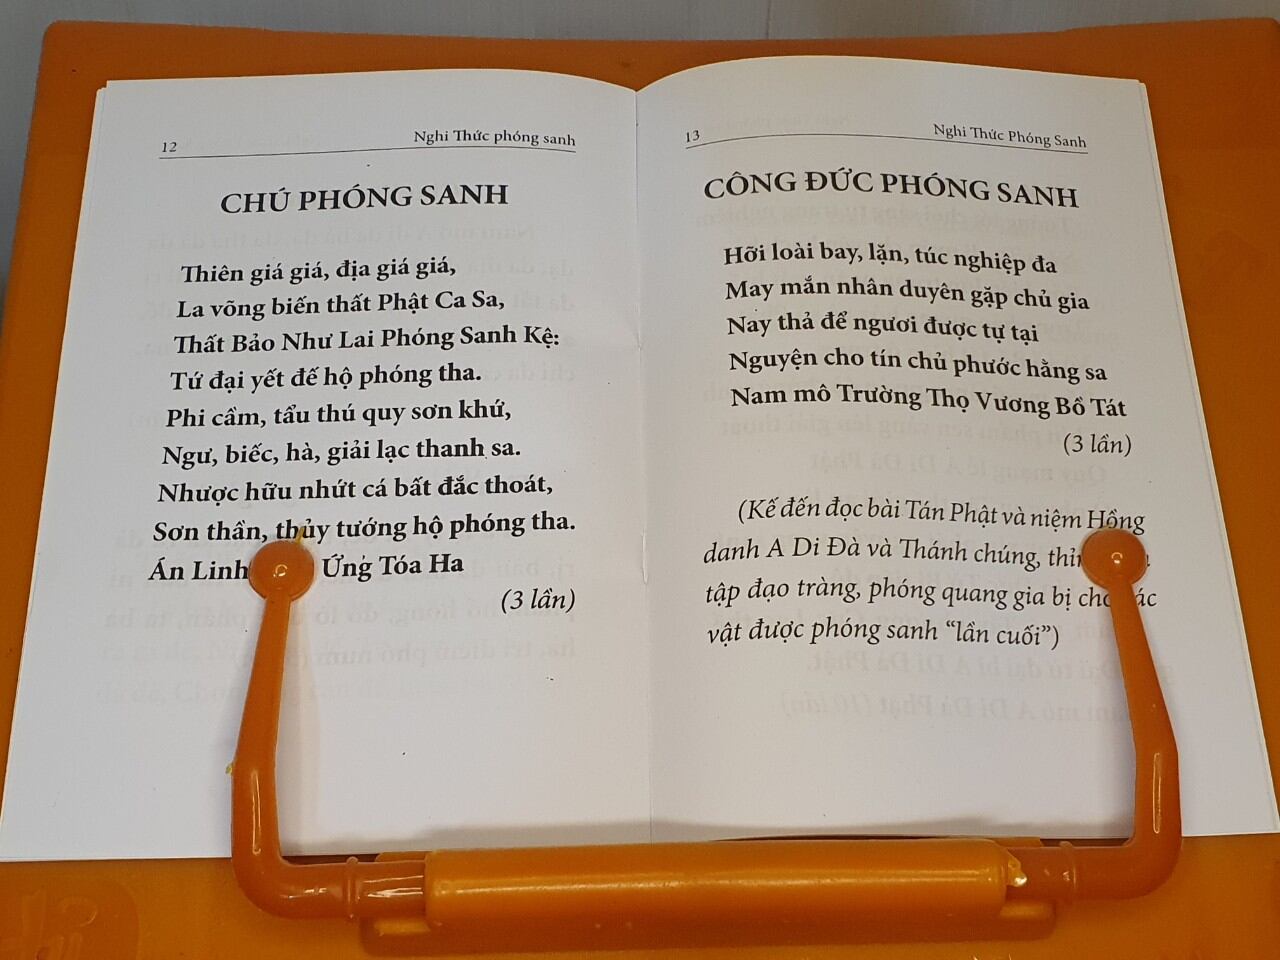 12
Nghi Thức phóng sanh
CHÚ PHÓNG SANH
Thiên giá giá, địa giá giá,
La võng biến thất Phật Ca Sa,
Thất Bảo Như Lai Phóng Sanh Kệ:
Tứ đại yết đế hộ phóng tha.
Phi cầm, tẩu thú quy sơn khứ,
Ngư, biếc, hà, giải lạc thanh sa.
Nhược hữu nhứt cá bất đắc thoát,
Sơn thần, thủy tướng hộ phóng tha.
Án Linh Ứng Tóa Ha
(3 lần)
13
Nghi Thức Phóng Sanh
CÔNG ĐỨC PHÓNG SANH
Hỡi loài bay, lặn, túc nghiệp đa
May mắn nhân duyên gặp chủ gia
Nay thả để ngươi được tự tại
Nguyện cho tín chủ phước hằng sa
Nam mô Trường Thọ Vương Bồ Tát
(3 lần)
(Kế đến đọc bài Tán Phật và niệm Hồng
danh A Di Đà và Thánh chúng,
tập đạo tràng, phóng quang gia bị
vật được phóng sanh “lần cuối”)